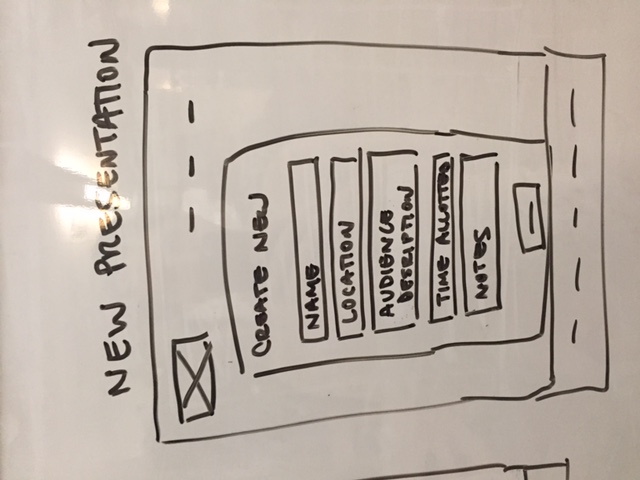 NEW PRESENTATION
CREATE NEW
NAME
LOCATION
AUDIENCE
DESRIPTION
TIME ALLOTTED
NOTES